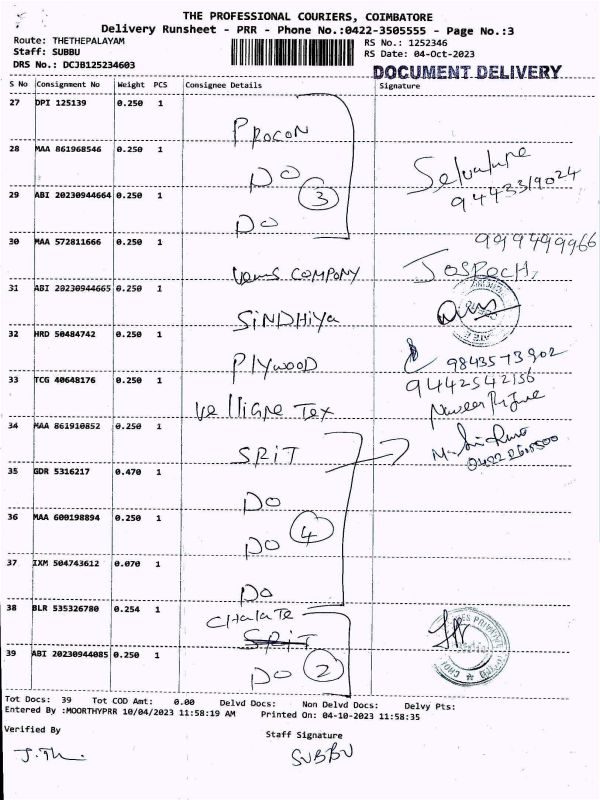 THE PROFESSIONAL COURIERS, COIMBATORE
Delivery Runsheet - PRR - Phone No.:0422-3505555 - Page No.:3
Route: THETHEPALAYAM
RS No.: 1252346
Staff: SUBBU
RS Date: 04-Oct-2023
DRS No.: DCJB125234603
DOCUMENT DELIVERY
S No Consignment No Weight PCS Consignee Details Signature
27 DPI 125139 0.250 1
PROCON
28 MAA 861968546 0.250 1
DO
9443319024
29 ABI 20230944664 0.250 1
3
DO
30 MAA 572811666 0.250 1
999499966
Venus COMPANY
JOSPOCH,
31 ABI 20230944665 0.250 1
SINDHIYA
32 HRD 50484742 0.250 1
PLYWOOD
9843573902
33 TCG 40648176 0.250 1
9442542156
Tex
34 MAA 861910852 0.250 1
SPRIT
35 GDR 5316217 0.470 1
DO
36 MAA 600198894 0.250 1
DO 4
37 IXM 504743612 0.070 1
DO
38 BLR 535326780 0.254 1
CHALATE
SPRIT
39 ABI 20230944085 0.250 1
DO 2
Tot Docs: 39 Tot COD Amt: 0.00 Delvd Docs: Non Delvd Docs: Delvy Pts:
Entered By :MOORTHYPRR 10/04/2023 11:58:19 AM Printed On: 04-10-2023 11:58:35
Verified By
Staff Signature
SUBBU